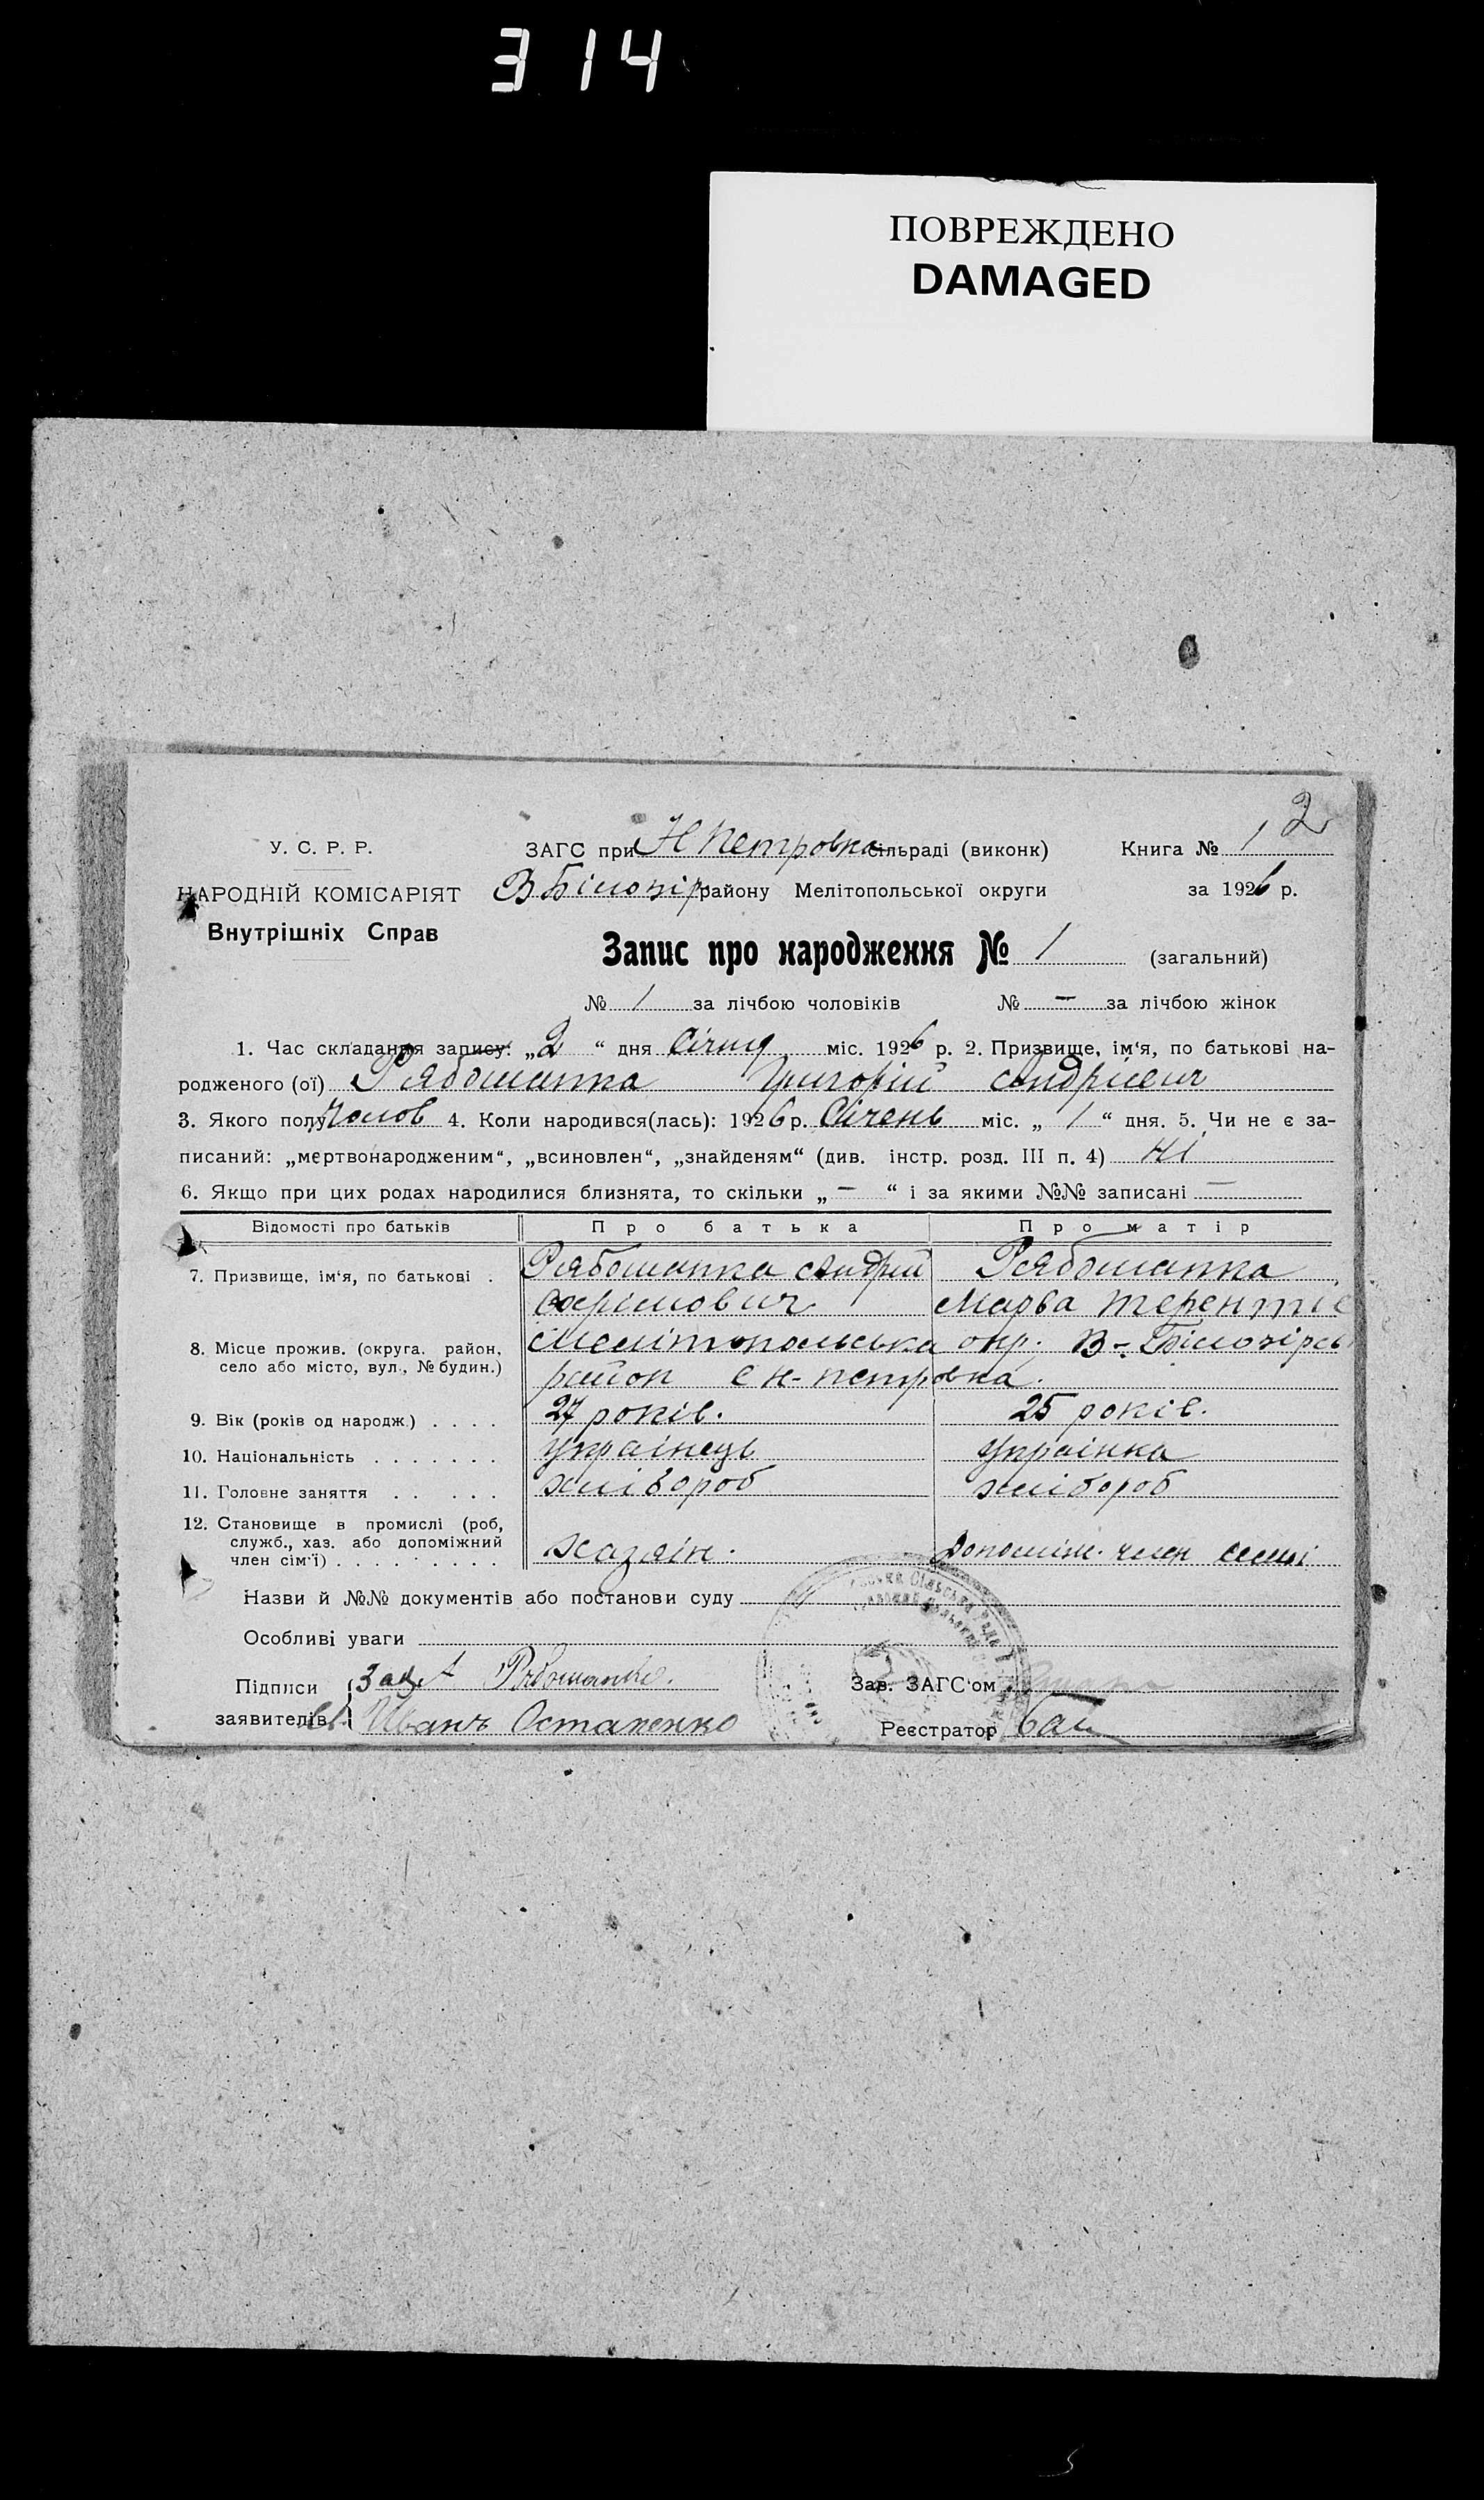 314
ПОВРЕЖДЕНО
DAMAGED
2
У. С. Р. Р.
ЗАГС при Н Петровка сільраді (виконк)
Книга № 1
НАРОДНІЙ КОМІСАРІЯТ
В Білозір району Мелітопольської округи
за 1926 р.
Внутрішніх Справ
Запис про народження № 1 (загальний)
№ 1 за лічбою чоловіків № — за лічбою жінок
1. Час складання запису: „2“ дня Січня міс. 1926 р. 2. Призвище, ім‘я, по батькові на-
родженого (ої) Рябошапка Григорій Андрієвич
3. Якого полу Чолов 4. Коли народився(лась): 1926 р. Січень міс. „1“ дня. 5. Чи не є за-
писаний: „мертвонародженим“, „всиновлен“, „знайденям“ (див. інстр. розд. III п. 4) Ні
6. Якщо при цих родах народилися близнята, то скільки „—“ і за якими №№ записані —
Відомості про батьків Про батька Про матір
7. Призвище, ім‘я, по батькові . Рябошапка Андрій Рябошапка
Марва Терентіє
8. Місце прожив. (округа, район, Мелітопольська окр. В-Білозірсь
село або місто, вул., № будин.) район с Н-петровка.
9. Вік (років од народж.) . . . . 27 років. 25 років.
10. Національність . . . . . . . Українець Українка
11. Головне заняття . . . . . . хлібороб хлібороб
12. Становище в промислі (роб,
служб., хаз. або допоміжний
член сім‘ї) . . . . . . . . . Хазяін. Допоміж. член семії
Назви й №№ документів або постанови суду
Особливі уваги
Підписи А Рябошапка.
Зав. ЗАГС‘ом
заявителів Иванъ Остапенко
Реєстратор